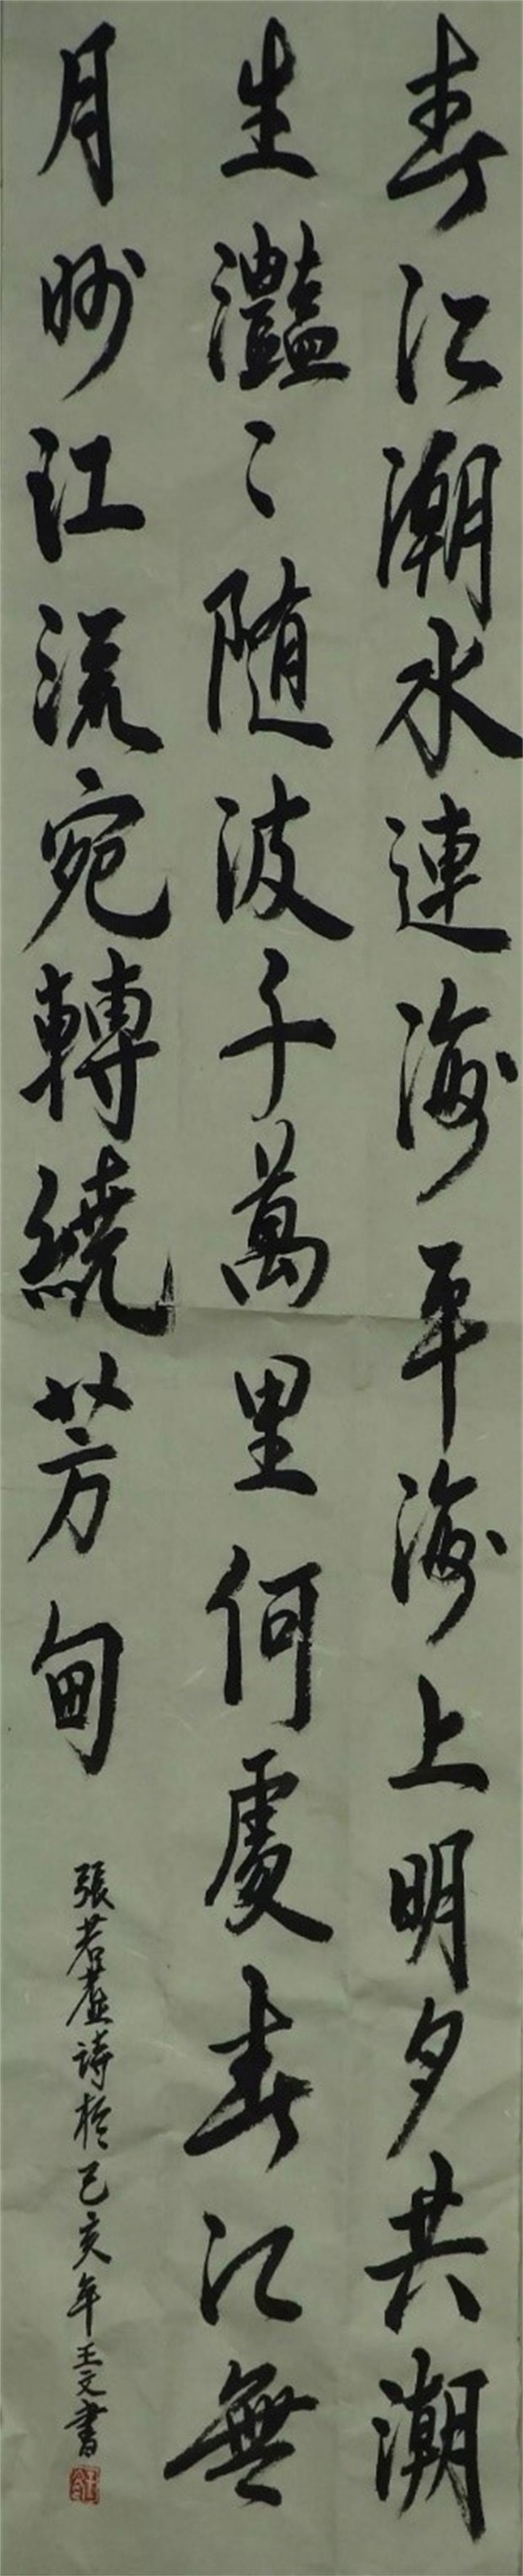 春江潮水連海平海上明夕共潮
生灩〻随波千萬里何處春江無
月明江流宛轉繞芳甸
張若虛詩於己亥年王文書